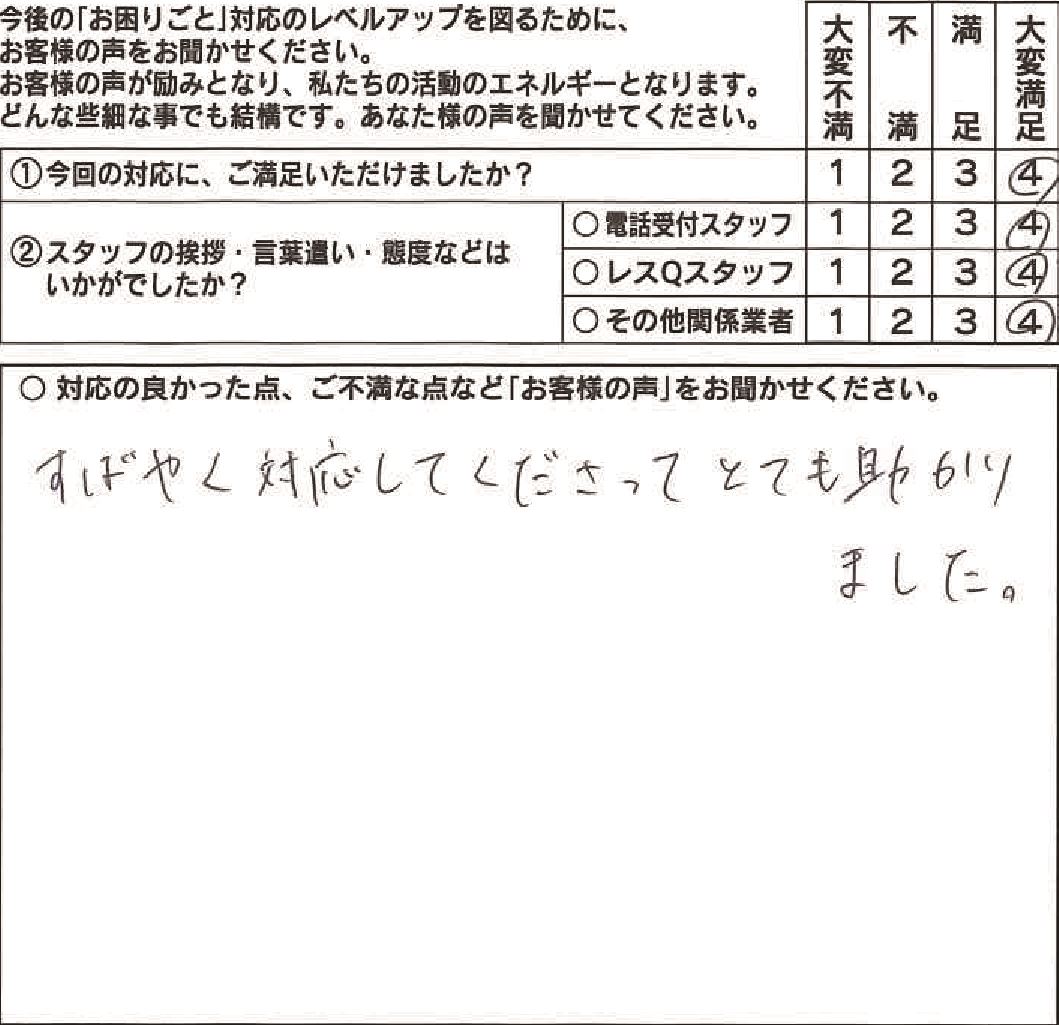 今後の「お困りごと」対応のレベルアップを図るために、
お客様の声をお聞かせください。
お客様の声が励みとなり、私たちの活動のエネルギーとなります。
どんな些細な事でも結構です。あなた様の声を聞かせてください。
大変不満 不満 満足 大変満足
①今回の対応に、ご満足いただけましたか？ 1 2 3 4
②スタッフの挨拶・言葉遣い・態度などは
いかがでしたか？
○電話受付スタッフ 1 2 3 4
○レスQスタッフ 1 2 3 4
○その他関係業者 1 2 3 4
○ 対応の良かった点、ご不満な点など「お客様の声」をお聞かせください。
すばやく対応してくださってとても助かり
ました。